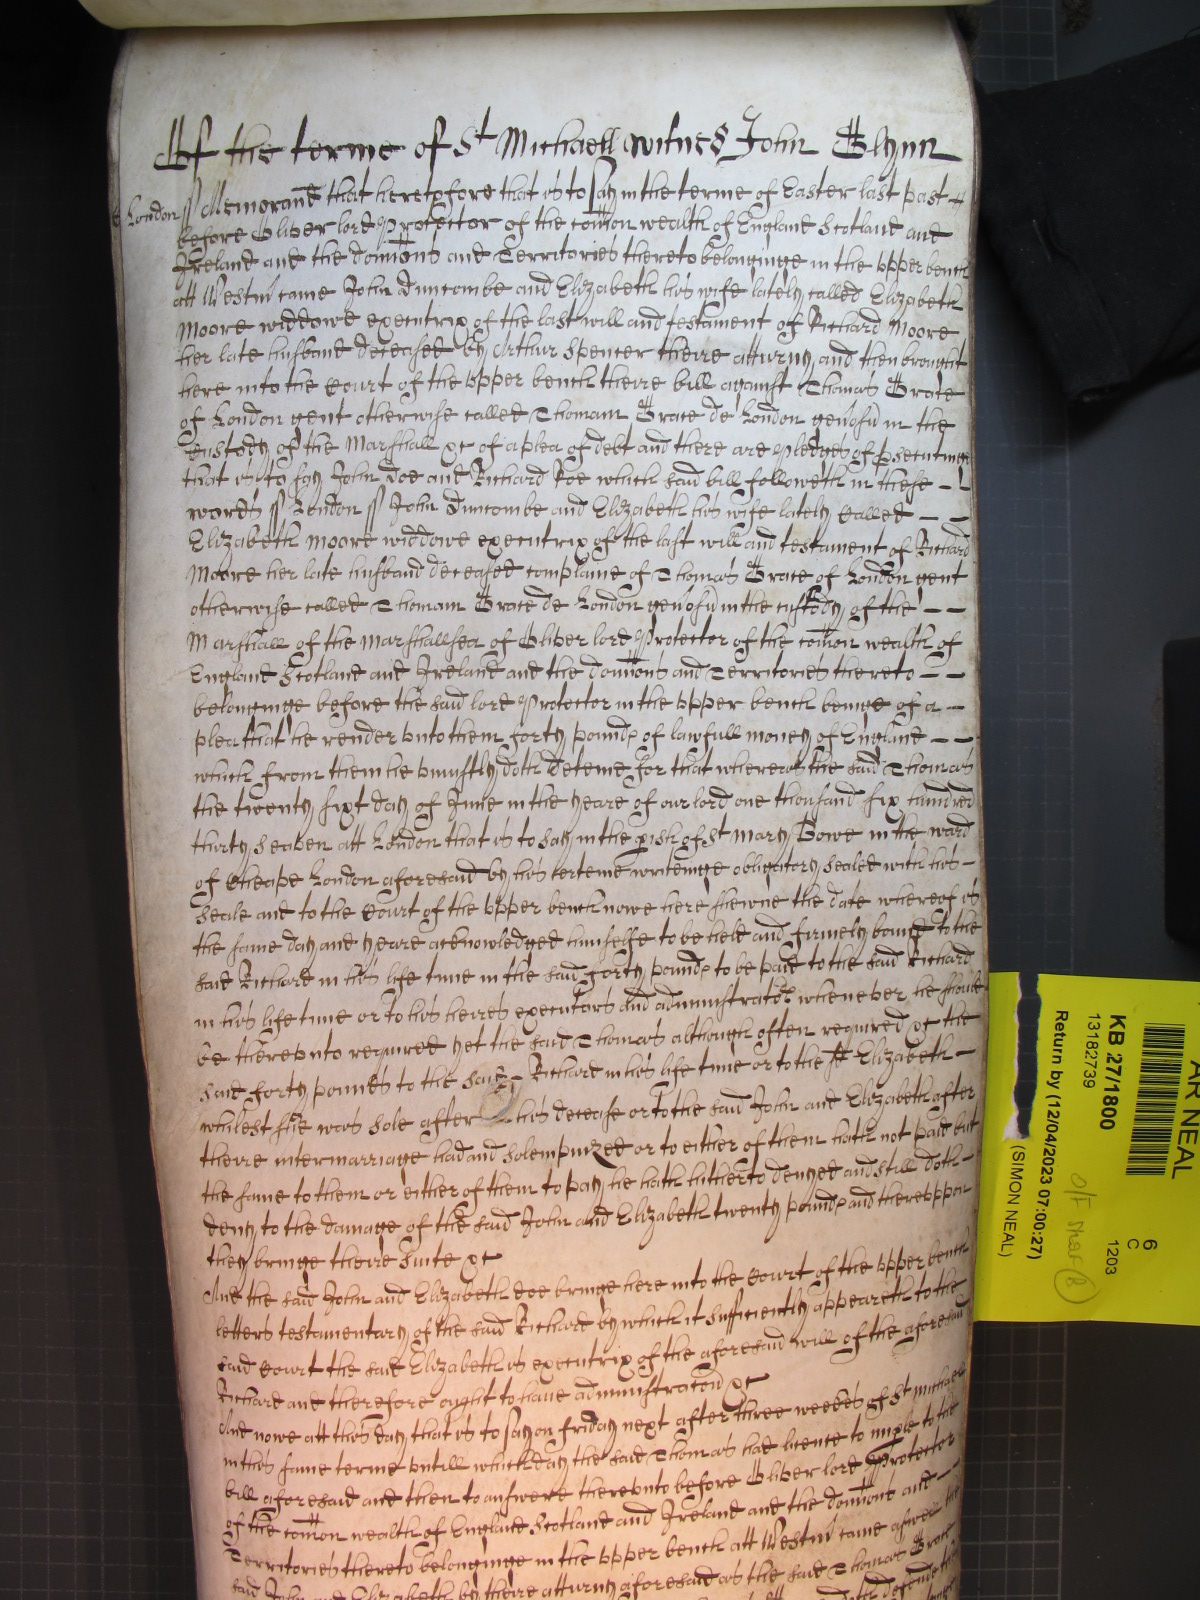 Of the terme of St Michaell witnes John Glynn
London ss Memorand that heretofore that is to say in the terme of Easter last past
before Oliver lord Protector of the comon wealth of England Scotland and
Ireland and the domions and Territories thereto belonginge in the upper bench
att Westm came John Duncombe and Elizabeth his wife lately called Elizabeth
Moore widdowe executrix of the last will and testament of Richard Moore
her late husband deceased by Arthur Spencer theire atturny and then brought
here into the Court of the upper bench theire bill against Thomas Grace
of London gent otherwise called Thomam Grace de London genosu in the
Custody of the Marshall &c of a plea of debt and there are pledges of psecuting
that is to say John Doe and Richard Roe which said bill followeth in these
words ss London ss John Duncombe and Elizabeth his wife lately called
Elizabeth Moore widdowe executrix of the last will and testament of Richard
Moore her late husband deceased complaine of Thomas Grace of London gent
otherwise called Thomam Grace de London genosu in the custody of the
Marshall of the Marshallsea of Oliver lord Protector of the comon wealth of
England Scotland and Ireland and the domions and Territories thereto
belonginge before the said lord Protector in the upper bench beinge of a
plea that he render unto them forty pounds of lawfull money of England
which from them he uniustly doth deteine for that whereas the said Thomas
the twenty sixt day of June in the yeare of our lord one thousand six hundred
thirty seaven att London that is to say in the pish of St Mary Bowe in the ward
of Cheape London aforesaid by his certeine writeinge obligatory sealed with his
Seale and to the Court of the upper bench nowe here shewne the date whereof is
the same day and yeare acknowledged himselfe to be held and firmely bound to the
said Richard in his life time in the said forty pounds to be paid to the said Richard
in his life time or to his heires executors and administrators whenever he should
be thereunto required yet the said Thomas although often required &c the
said forty pounds to the said Richard in his life time or to the sd Elizabeth
whilest she was sole after his decease or to the said John and Elizabeth after
theire intermarriage had and solempnized or to either of them hath not paid but
the same to them or either of them to pay he hath hitherto denyed and still doth
deny to the damage of the said John and Elizabeth twenty pounds and thereuppon
they bringe theire Suite &c
And the said John and Elizabeth doe bringe here into the Court of the upper bench
letters testamentary of the said Richard by which it sufficiently appeareth to the
said Court the said Elizabeth is executrix of the aforesaid will of the aforesaid
Richard and therefore ought to have administracon &c
And nowe att this day that is to say on Friday next after three weekes of St Michael
in this same terme untill which day the said Thomas had licence to imple to the
bill aforesaid and then to answere thereunto before Oliver lord Protector
of the comon wealth of England Scotland and Ireland and the domions and
Territories thereto belonginge in the upper bench att Westm came aswell the
said John and Elizabeth by theire atturny aforesaid as the said Thomas Grace
AR NEAL
KB 27/1800
13182739
Return by (12/04/2023 07:00:27)
(SIMON NEAL)
6
C
1203